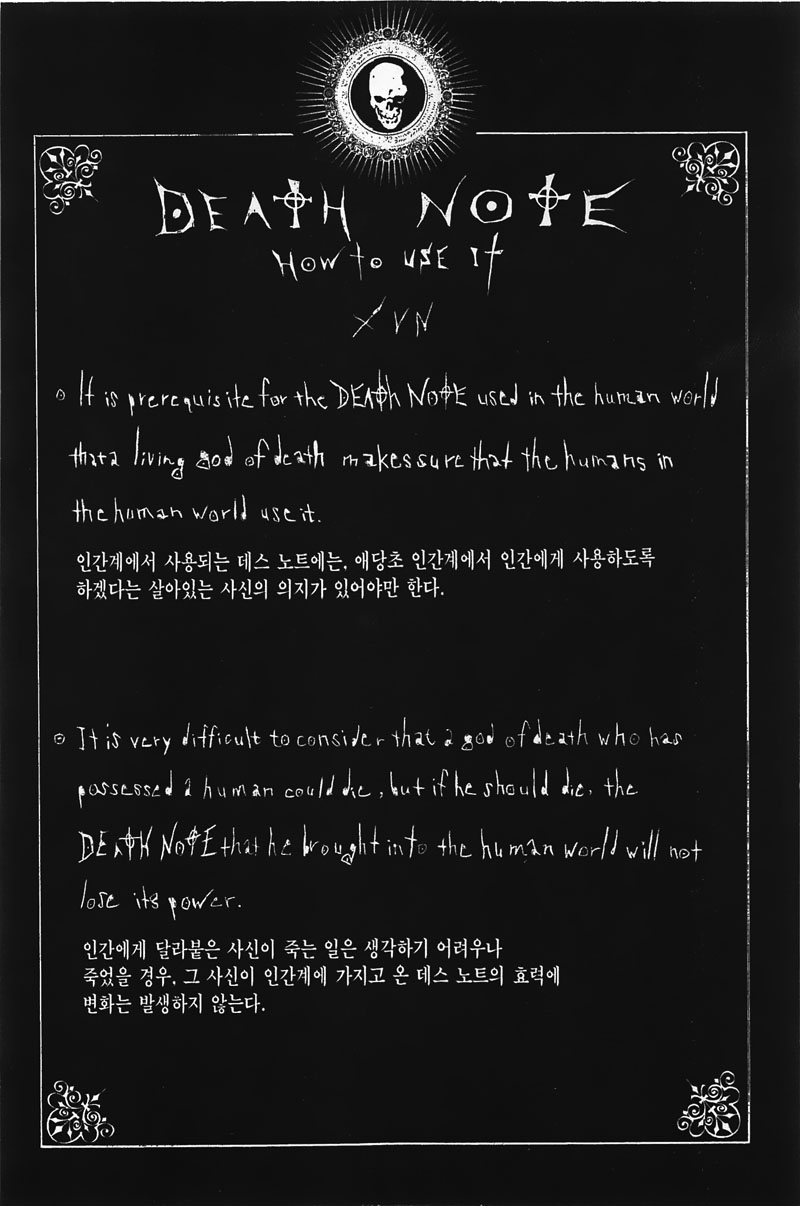 DEATH NOTE
HOW to USE It
XVII
It is prerequisite for the DEATH NOTE used in the human world
that a living god of death makes sure that the humans in
the human world use it.
인간계에서 사용되는 데스 노트에는, 애당초 인간계에서 인간에게 사용하도록
하겠다는 살아있는 사신의 의지가 있어야만 한다.
It is very difficult to consider that a god of death who has
possessed a human could die, but if he should die, the
DEATH NOTE that he brought into the human world will not
lose its power.
인간에게 달라붙은 사신이 죽는 일은 생각하기 어려우나
죽었을 경우, 그 사신이 인간계에 가지고 온 데스 노트의 효력에
변화는 발생하지 않는다.